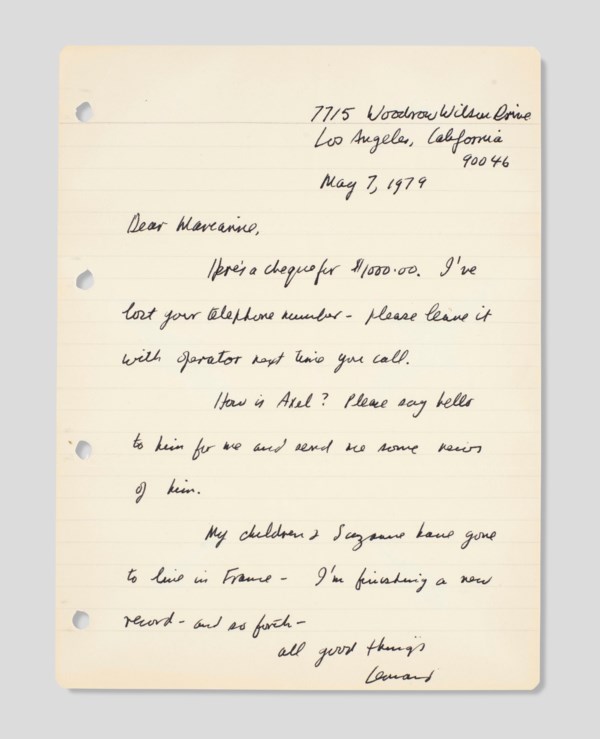 7715 Woodrow Wilson Drive
Los Angeles, California
90046
May 7, 1979
Dear Marianne,
Here's a cheque for $1000.00. I've
lost your telephone number - please leave it
with operator next time you call.
How is Axel? Please say hello
to him for me and send me some news
of him.
My children & Suzanne have gone
to live in France - I'm finishing a new
record - and so forth -
all good things
Leonard